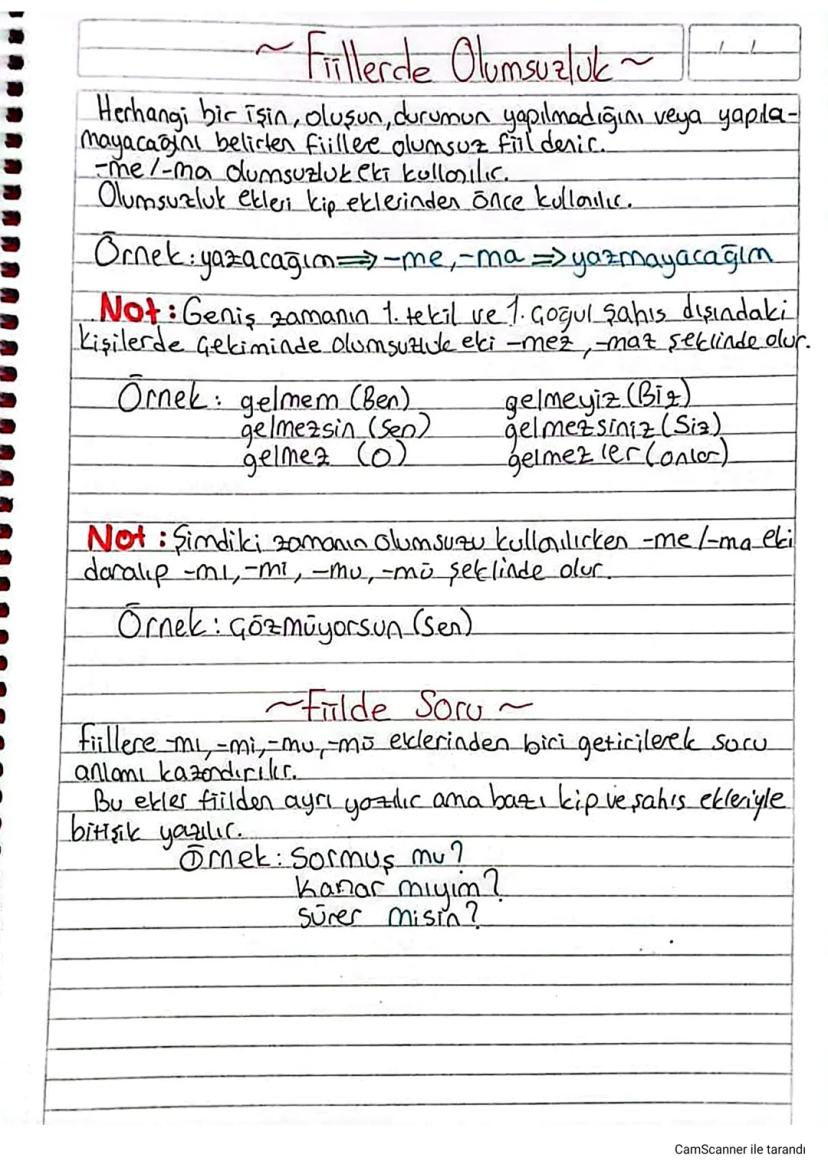 ~ Fiillerde Olumsuzluk ~
Herhangi bir işin, oluşun, durumun yapılmadığını veya yapıla-
mayacağını belirten fiillere olumsuz fiil denir.
-me/-ma olumsuzluk eki kullanılır.
Olumsuzluk ekleri kip eklerinden önce kullanılır.
Örnek: yazacağım ⇒ -me, -ma ⇒ yazmayacağım
Not: Geniş zamanın 1. tekil ve 1. çoğul şahıs dışındaki
kişilerde çekiminde olumsuzluk eki -mez, -maz şeklinde olur.
Örnek: gelmem (Ben) gelmeyiz (Biz)
gelmezsin (Sen) gelmezsiniz (Siz)
gelmez (O) gelmezler (onlar)
Not: Şimdiki zamanın olumsuzu kullanılırken -me/-ma eki
daralıp -mı, -mi, -mu, -mü şeklinde olur.
Örnek: Çözmüyorsun (Sen)
~ Fiilde Soru ~
fiillere -mı, -mi, -mu, -mü eklerinden biri getirilerek soru
anlamı kazandırılır.
Bu ekler fiilden ayrı yazılır ama bazı kip ve şahıs ekleriyle
bitişik yazılır.
Örnek: Sormuş mu?
Kanar mıyım?
Sürer misin?
CamScanner ile tarandı